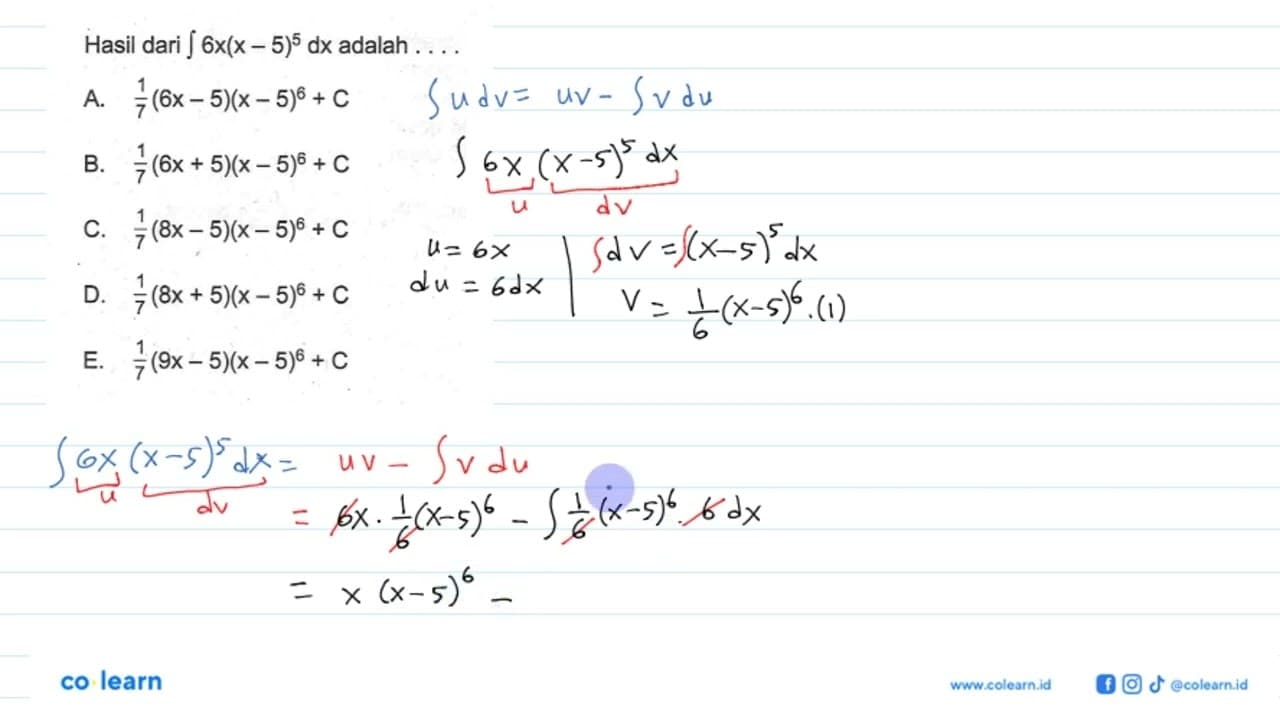 Hasil dari ∫ 6x(x – 5)⁵ dx adalah . . . .
A. 1/7 (6x – 5)(x – 5)⁶ + C
B. 1/7 (6x + 5)(x – 5)⁶ + C
C. 1/7 (8x – 5)(x – 5)⁶ + C
D. 1/7 (8x + 5)(x – 5)⁶ + C
E. 1/7 (9x – 5)(x – 5)⁶ + C
∫ u dv = uv – ∫ v du
∫ 6x (x–5)⁵ dx
u dv
u = 6x
du = 6dx
∫dv = ∫(x–5)⁵ dx
v = 1/6 (x–5)⁶ . (1)
∫ 6x (x–5)⁵ dx = uv – ∫ v du
u dv
= 6x . 1/6 (x–5)⁶ – ∫ 1/6 (x–5)⁶ . 6 dx
= x (x–5)⁶ –
co learn
www.colearn.id
@colearn.id